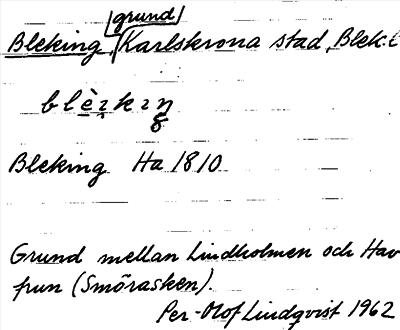 grund
Bleking, Karlskrona stad, Blek.l
Bleking Ha 1810
Grund mellan Lindholmen och Hav
frun (Smörasken).
Per-Olof Lindqvist 1962